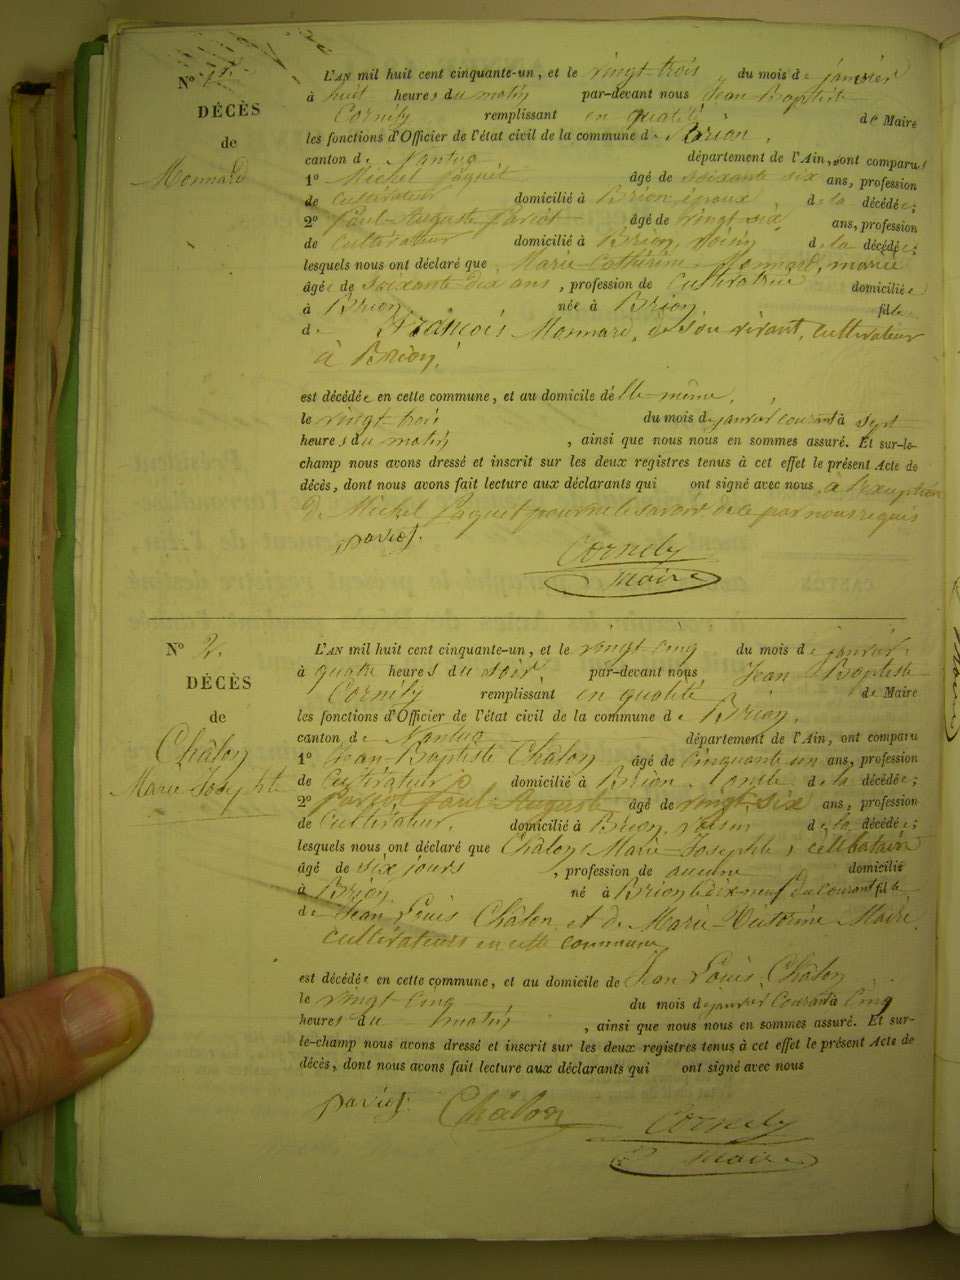 N° 1er.
DÉCÈS
de
Monnard
L'AN mil huit cent cinquante-un, et le vingt-trois du mois de janvier
à huit heures du matin par-devant nous Jean Baptiste
Cornély remplissant en qualité de Maire
les fonctions d'Officier de l'état civil de la commune de Brion,
canton de Nantua département de l'Ain, sont comparus
1° Michel Paquet âgé de soixante six ans, profession
de cultivateur domicilié à Brion, époux de la décédée;
2° Paul-Auguste Pariot âgé de vingt-six ans, profession
de cultivateur domicilié à Brion, voisin de la décédée;
lesquels nous ont déclaré que Marie-Cathérine Monnard, mariée
âgée de soixante-dix ans, profession de cultivatrice domiciliée
à Brion née à Brion fille
de François Monnard, de son vivant, cultivateur
à Brion,
est décédée en cette commune, et au domicile d'elle-même,
le vingt-trois du mois de janvier courant à sept
heures du matin, ainsi que nous nous en sommes assuré. Et sur-le-
champ nous avons dressé et inscrit sur les deux registres tenus à cet effet le présent Acte de
décès, dont nous avons fait lecture aux déclarants qui ont signé avec nous, à l'exception
de Michel Paquet pour ne le savoir de ce par nous requis
Pariot.
Cornély
Maire
N° 2.
DÉCÈS
de
Châlon
Marie Josephte
L'AN mil huit cent cinquante-un, et le vingt-cinq du mois de janvier
à quatre heures du soir, par-devant nous Jean Baptiste
Cornély remplissant en qualité de Maire
les fonctions d'Officier de l'état civil de la commune de Brion,
canton de Nantua département de l'Ain, ont comparu
1° Jean-Baptiste Châlon âgé de cinquante un ans, profession
de cultivateur domicilié à Brion, oncle de la décédée;
2° Pariot Paul-Auguste âgé de vingt-six ans, profession
de cultivateur, domicilié à Brion, voisin de la décédée;
lesquels nous ont déclaré que Châlon Marie-Josephte, célibataire
âgé de six jours, profession de aucune domicilié
à Brion né à Brion le dix neuf du courant fille
de Jean Louis Châlon et de Marie-Victorine Maire
cultivateurs en cette commune,
est décédée en cette commune, et au domicile de Jean Louis Châlon
le vingt-cinq du mois de janvier courant à cinq
heures du matin, ainsi que nous nous en sommes assuré. Et sur-
le-champ nous avons dressé et inscrit sur les deux registres tenus à cet effet le présent Acte de
décès, dont nous avons fait lecture aux déclarants qui ont signé avec nous
Pariot. Châlon
Cornély
Maire